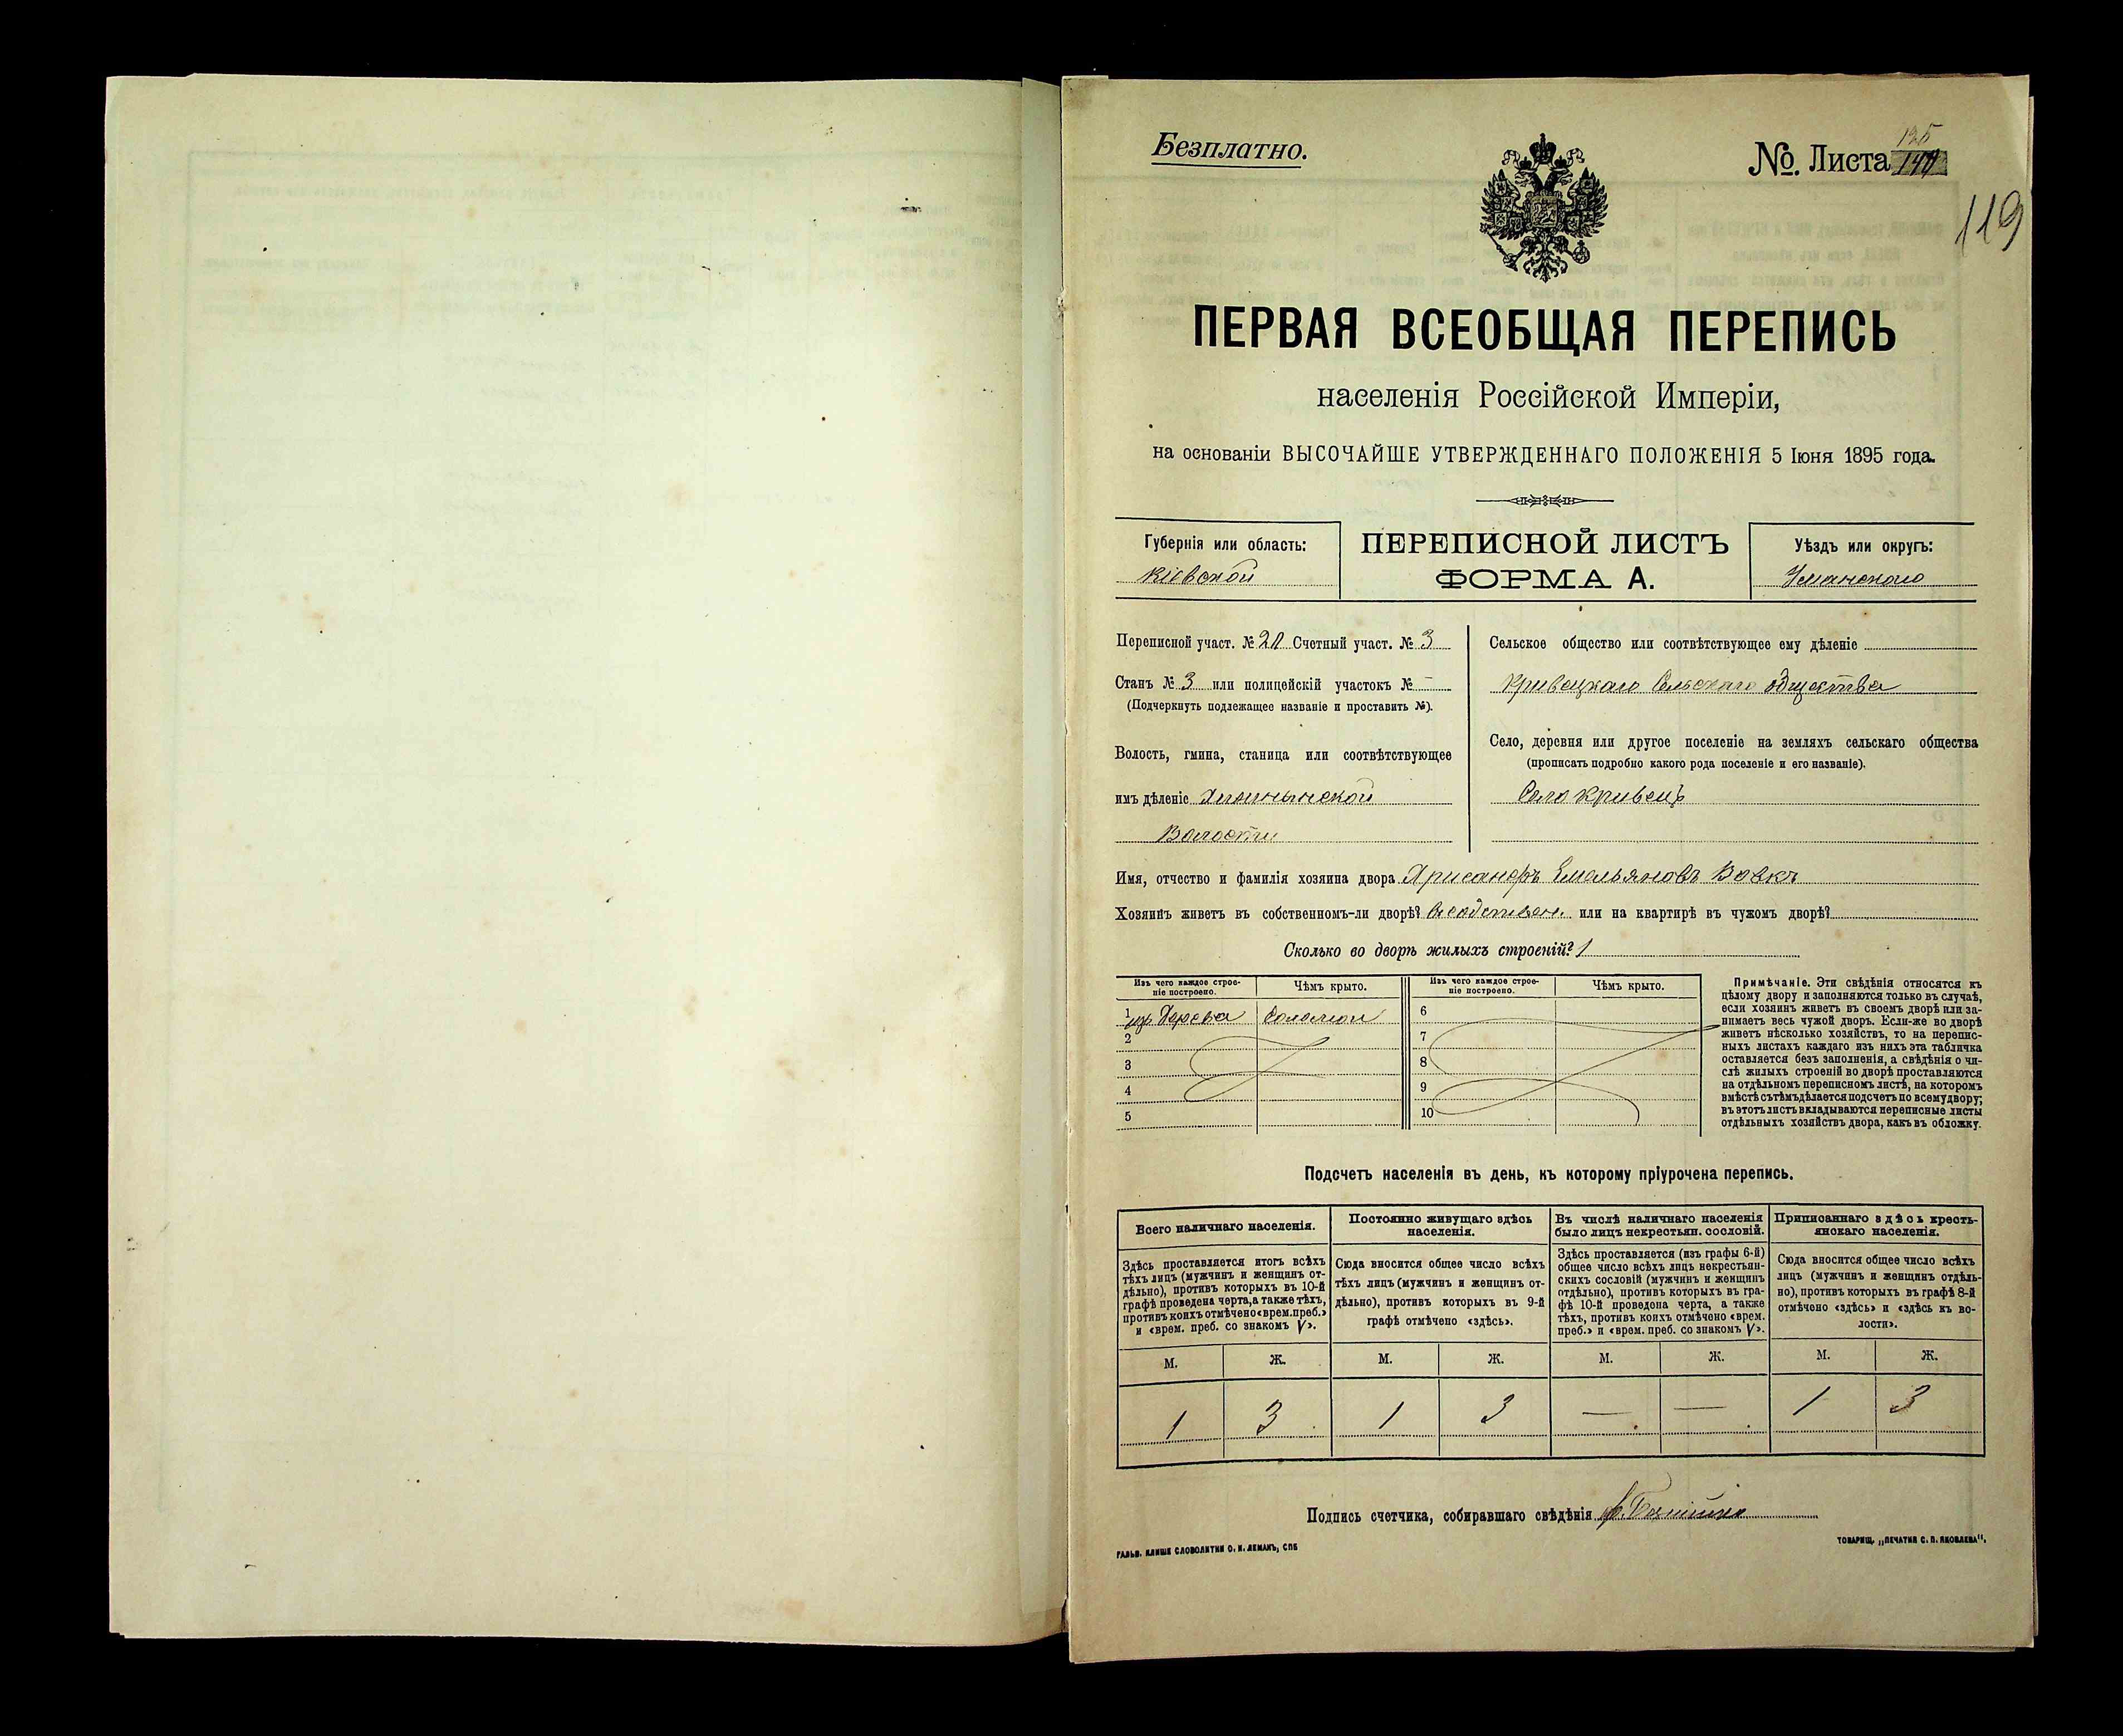 Безплатно.
№. Листа
125
119
ПЕРВАЯ ВСЕОБЩАЯ ПЕРЕПИСЬ
населенія Россійской Имперіи,
на основаніи ВЫСОЧАЙШЕ УТВЕРЖДЕННАГО ПОЛОЖЕНІЯ 5 Іюня 1895 года.
Губернія или область:
Кіевской
ПЕРЕПИСНОЙ ЛИСТЪ
ФОРМА А.
Уѣздъ или округъ:
Уманского
Переписной участ. № Счетный участ. № 3
Станъ № 3 или полицейскій участокъ № —
(Подчеркнуть подлежащее названіе и проставить №).
Волость, гмина, станица или соотвѣтствующее
имъ дѣленіе
Волости
Сельское общество или соотвѣтствующее ему дѣленіе
Кривецкаго Сельскаго общества
Село, деревня или другое поселеніе на земляхъ сельскаго общества
(прописать подробно какого рода поселеніе и его названіе).
Село Кривецъ
Имя, отчество и фамилія хозяина двора Хрисанфъ Емельяновъ Вовкъ
Хозяинъ живетъ въ собственномъ-ли дворѣ? В собствен. или на квартирѣ въ чужомъ дворѣ?
Сколько во дворѣ жилыхъ строеній? 1
Изъ чего каждое строе-
ніе построено.
Чѣмъ крыто.
Изъ чего каждое строе-
ніе построено.
Чѣмъ крыто.
1 изъ дерева соломой
2
3
4
5
6
7
8
9
10
Примѣчаніе. Эти свѣдѣнія относятся къ
цѣлому двору и заполняются только въ случаѣ,
если хозяинъ живетъ въ своемъ дворѣ или за-
нимаетъ весь чужой дворъ. Если-же во дворѣ
живетъ нѣсколько хозяйствъ, то на перепис-
ныхъ листахъ каждаго изъ нихъ эта табличка
оставляется безъ заполненія, а свѣдѣнія о чи-
слѣ жилыхъ строеній во дворѣ проставляются
на отдѣльномъ переписномъ листѣ, на которомъ
вмѣстѣ съ тѣмъ дѣлается подсчетъ по всему двору;
въ этотъ листъ вкладываются переписные листы
отдѣльныхъ хозяйствъ двора, какъ въ обложку.
Подсчетъ населенія въ день, къ которому пріурочена перепись.
Всего наличнаго населенія.
Здѣсь проставляется итогъ всѣхъ
тѣхъ лицъ (мужчинъ и женщинъ от-
дѣльно), противъ которыхъ въ 10-й
графѣ проведена черта, а также тѣхъ,
противъ коихъ отмѣчено «врем. преб.»
и «врем. преб. со знакомъ V».
Постоянно живущаго здѣсь
населенія.
Сюда вносится общее число всѣхъ
тѣхъ лицъ (мужчинъ и женщинъ от-
дѣльно), противъ которыхъ въ 9-й
графѣ отмѣчено «здѣсь».
Въ числѣ наличнаго населенія
было лицъ некрестьян. сословій.
Здѣсь проставляется (изъ графы 6-й)
общее число всѣхъ лицъ некрестьян-
скихъ сословій (мужчинъ и женщинъ
отдѣльно), противъ которыхъ въ гра-
фѣ 10-й проведена черта, а также
тѣхъ, противъ коихъ отмѣчено «врем.
преб.» и «врем. преб. со знакомъ V».
Приписаннаго здѣсь кресть-
янскаго населенія.
Сюда вносится общее число всѣхъ
лицъ (мужчинъ и женщинъ отдѣль-
но), противъ которыхъ въ графѣ 8-й
отмѣчено «здѣсь» и «здѣсь къ во-
лости».
М. Ж. М. Ж. М. Ж. М. Ж.
1 3 1 3 — — 1 3
Подпись счетчика, собиравшаго свѣдѣнія
ГАЛЬВ. КЛИШЕ СЛОВОЛИТНИ О. И. ЛЕМАНЪ, СПБ
ТОВАРИЩ. „ПЕЧАТНЯ С. П. ЯКОВЛЕВА".